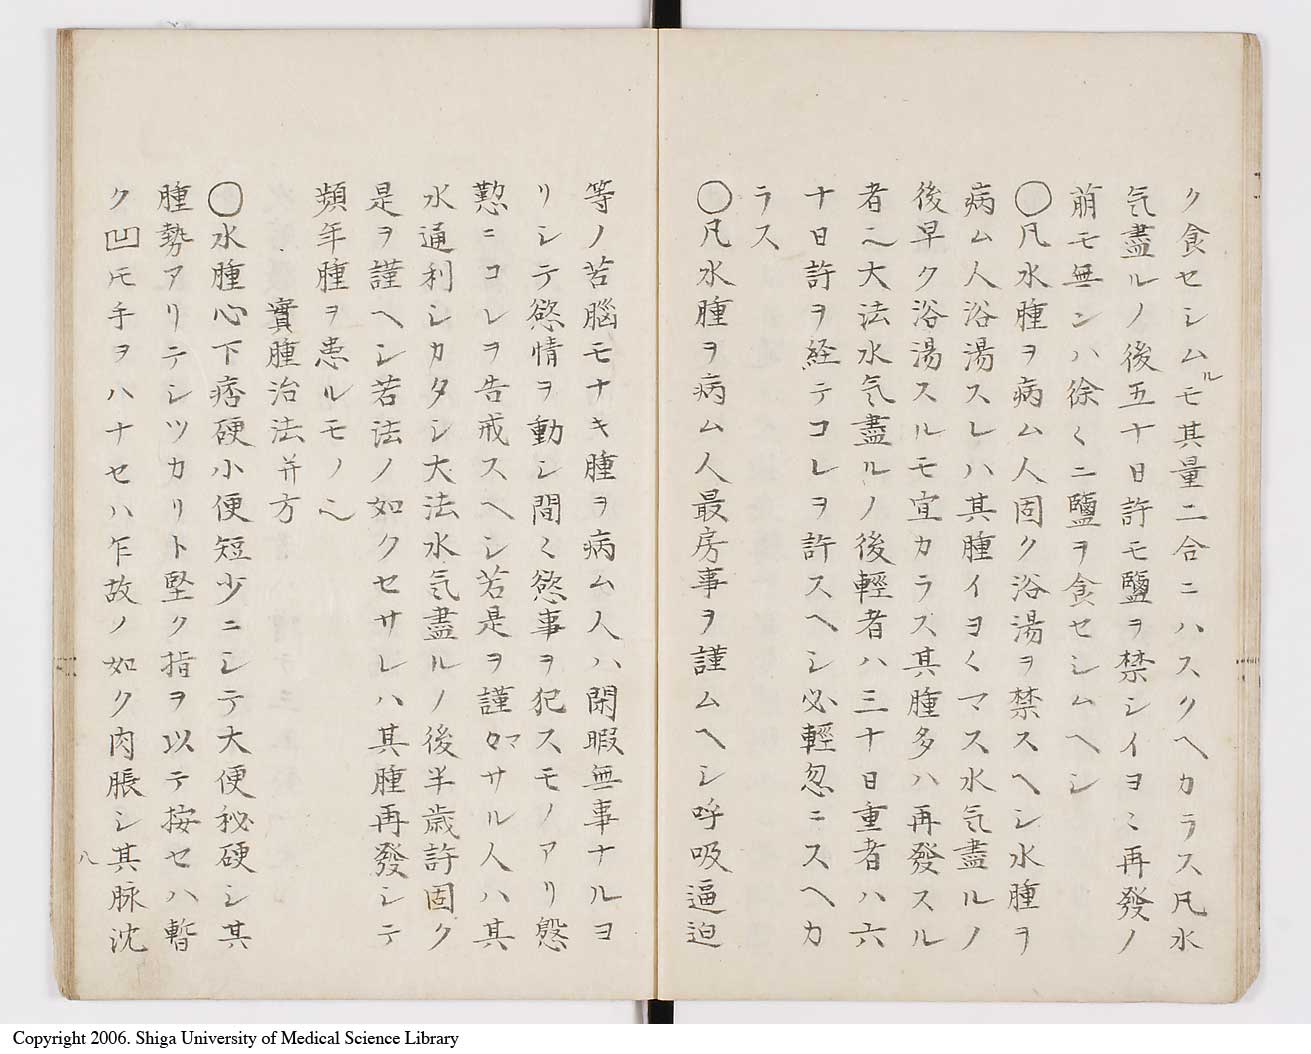 ク食セシムルモ其量二合ニハスクヘカラス凡水
气盡ルノ後五十日許モ鹽ヲ禁シイヨミ再發ノ
萠モ無ンハ徐くニ鹽ヲ食セシムヘシ
〇凡水腫ヲ病ム人固ク浴湯ヲ禁スヘシ水腫ヲ
病ム人浴湯スレハ其腫イヨくマス水气盡ルノ
後早ク浴湯スルモ宜カラズ其腫多ハ再發スル
者ニ大法水气盡ルノ後輕者ハ三十日重者ハ六
十日許ヲ経テコレヲ許スヘシ必輕忽ニスヘカ
ラス
〇凡水腫ヲ病ム人最房事ヲ謹ムヘシ呼吸逼迫
等ノ苦腦モナキ腫ヲ病ム人ハ閑暇無事ナルヨ
リシテ慾情ヲ動シ間く慾事ヲ犯スモノアリ慇
懃ニコレヲ告戒スヘシ若是ヲ謹マサル人ハ其
水通利シカタシ大法水气盡ルノ後半歳許固ク
是ヲ謹ヘシ若法ノ如クセサレハ其腫再發シテ
頻年腫ヲ患ルモノ也
實腫治法并方
〇水腫心下痞硬小便短少ニシテ大便秘硬シ其
腫勢アリテシツカリト堅ク指ヲ以テ按セハ暫
ク凹モ手ヲハナセハ乍故ノ如ク肉脹シ其脉沈
八
Copyright 2006. Shiga University of Medical Science Library